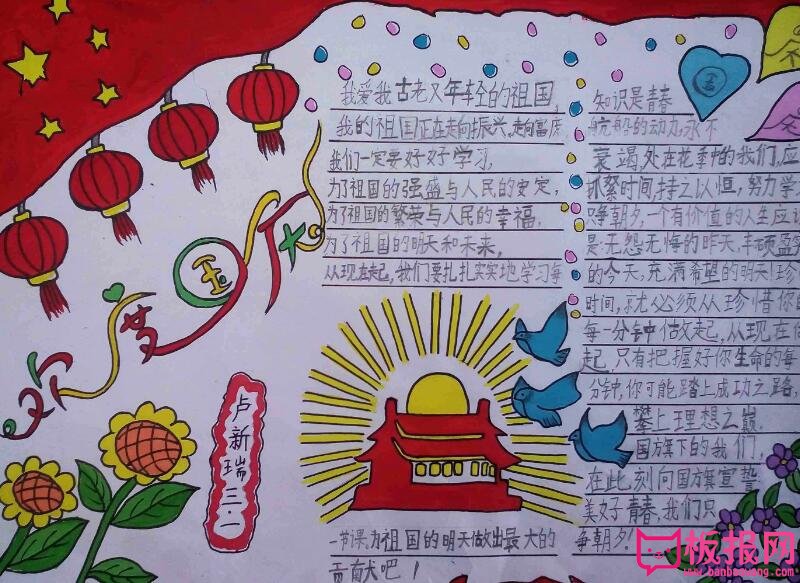 欢度国庆
卢新瑞 三.一
我爱我古老又年轻的祖国,
我的祖国正在走向振兴,走向富庶
我们一定要好好学习,
为了祖国的强盛与人民的安定,
为了祖国的繁荣与人民的幸福,
为了祖国的明天和未来,
从现在起,我们要扎扎实实地学习每
一节课,为祖国的明天做出最大的
贡献吧!
知识是青春
航船的动力,永不
衰竭,处在花季中的我们,应
抓紧时间,持之以恒,努力学
只争朝夕,一个有价值的人生应该
是:无怨无悔的昨天,丰硕盈实
的今天,充满希望的明天!珍
时间,就必须从珍惜你的
每一分钟做起,从现在做
起,只有把握好你生命的每
分钟,你可能踏上成功之路,
攀上理想之巅,
国旗下的我们,
在此刻向国旗宣誓
美好青春,我们只
争朝夕!
国
板报网
www.banbaowang.com